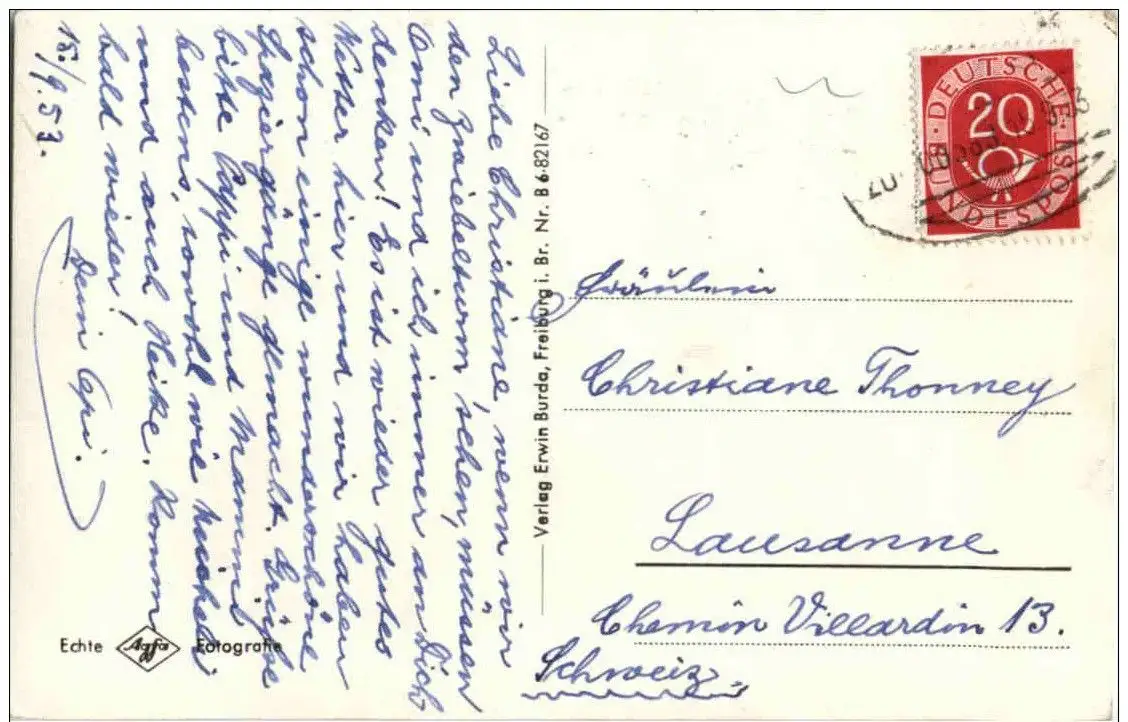 Liebe Christiane, wenn wir
den Zwiebelturm sehen, müssen
Omi und ich immer an Dich
denken! Es ist wieder gutes
Wetter hier und wir haben
schon einige wunderschöne
Spaziergänge gemacht. Grüsse
bitte Pappi und Mammi
bestens, sowohl wie
und auch Heike. Komm
bald wieder!
Dein Opi.
15./9.53.
Echte Agfa Fotografie
Verlag Erwin Burda, Freiburg i. Br. Nr. B 6·82167
DEUTSCHE BUNDESPOST
20
Fräulein
Christiane Thonney
Lausanne
Chemin Villardin 13.
Schweiz